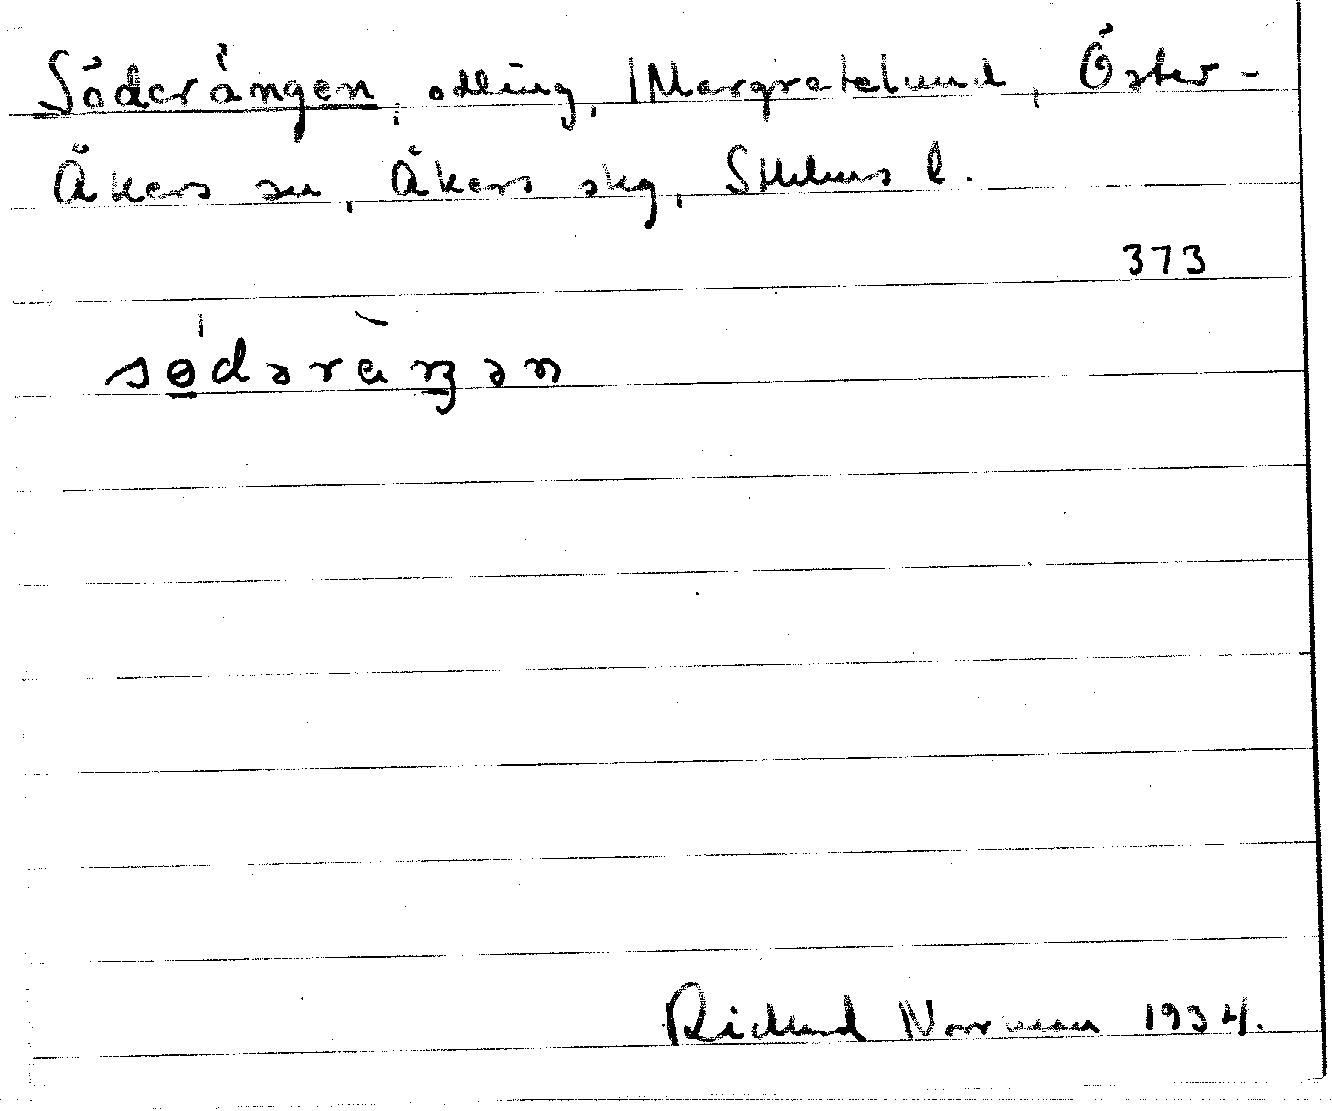 Söderängen, odling, Margretelund, Öster-
Åkers sn, Åkers skg, Sthlms l.
373
sødəräŋən
Richard Norrman 1934.